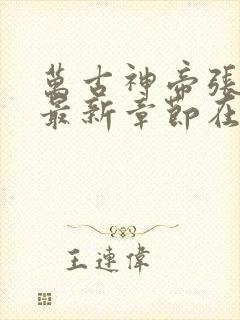 萬古神帝張
最新章節在
王連偉